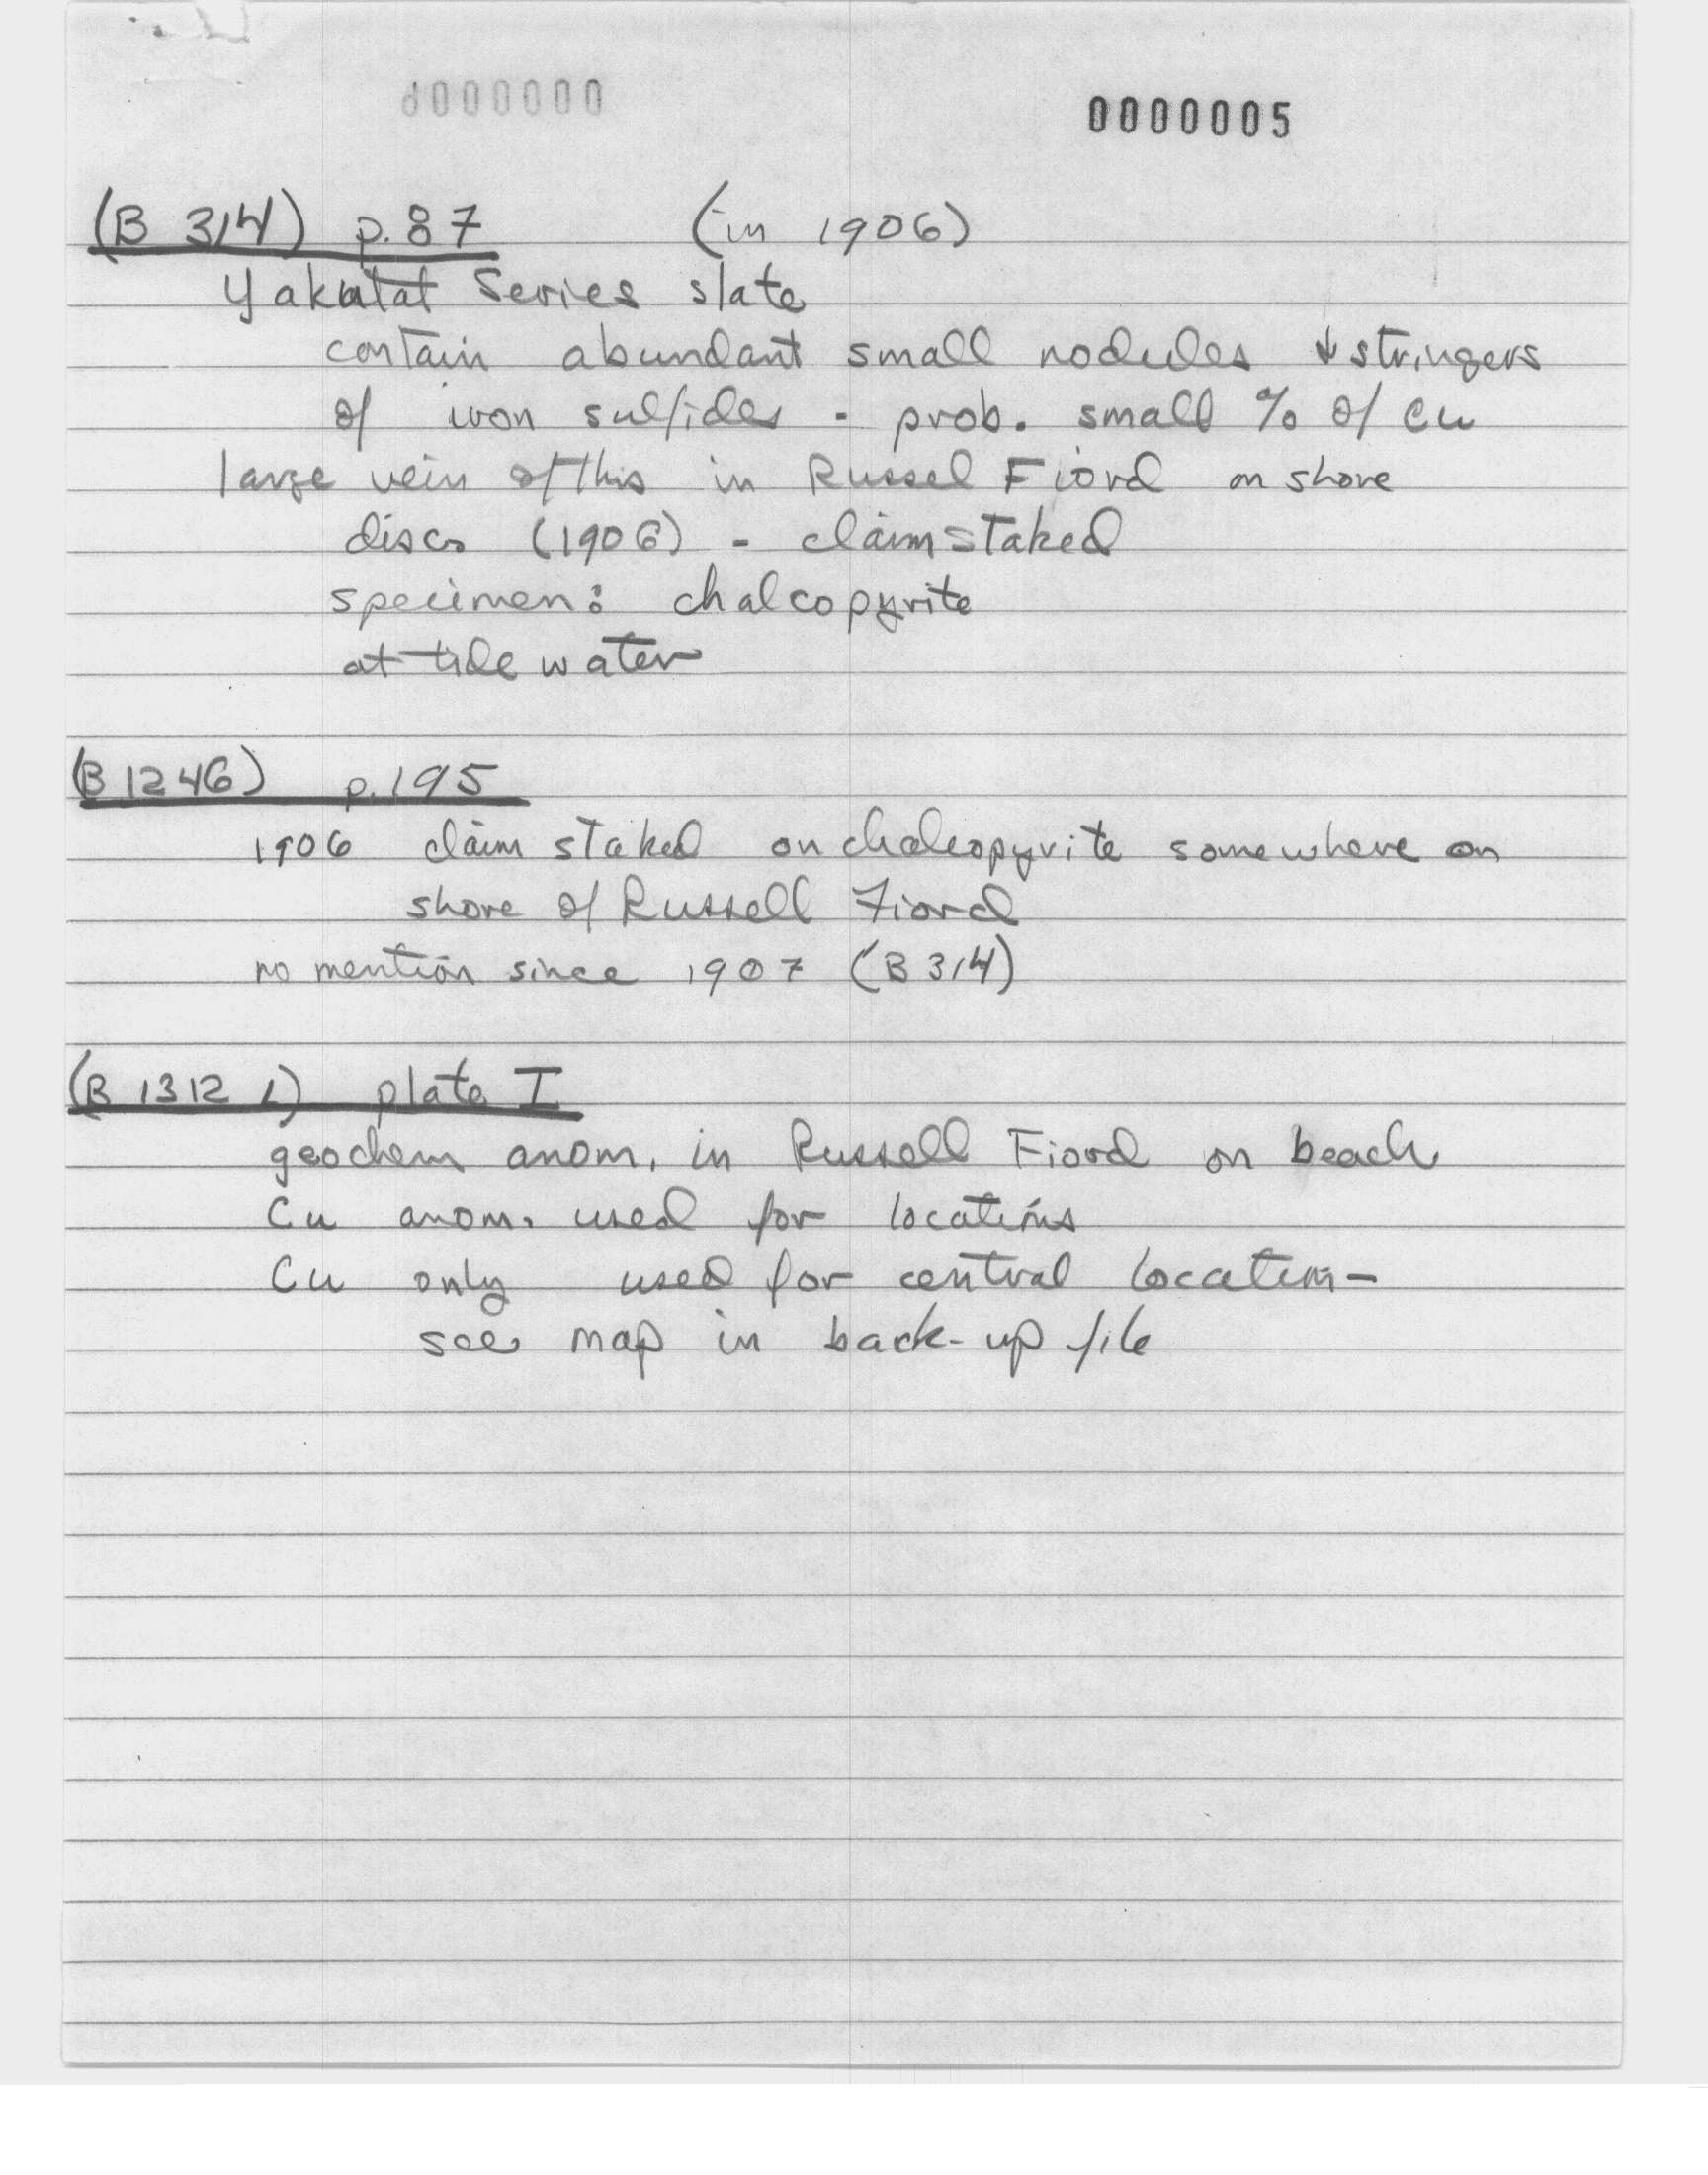 0000005
(B 314) p. 87 (in 1906)
Yakutat Series slate
contain abundant small nodules & stringers
of iron sulfides - prob. small % of Cu
large vein of this in Russel Fiord on shore
disc. (1906) - claim staked
specimen: chalcopyrite
at tide water
(B 1246) p. 195
1906 claim staked on chalcopyrite somewhere on
shore of Russell Fiord
no mention since 1907 (B 314)
(B 1312 L) plate I
geochem anom. in Russell Fiord on beach
Cu anom. used for locations
Cu only used for central location -
see map in back-up file